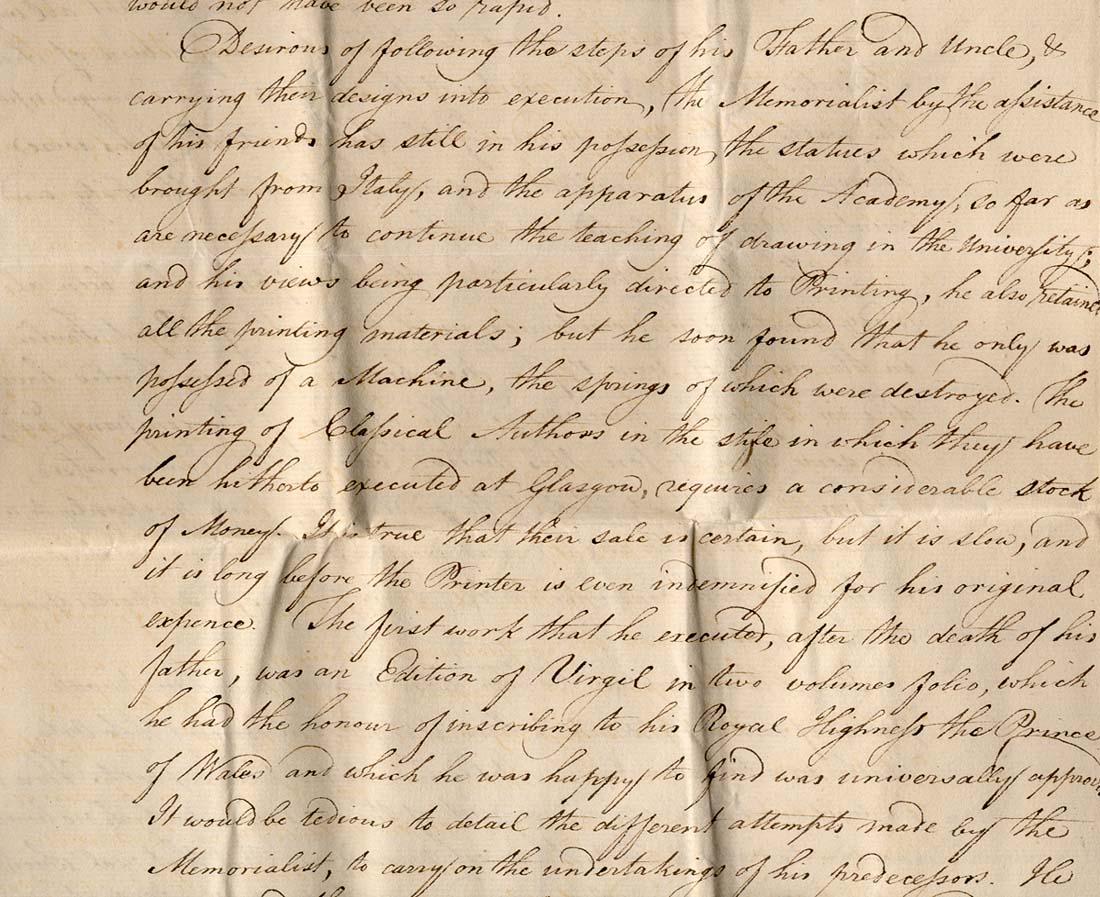 would not have been so rapid.
Desirous of following the steps of his Father and Uncle, &
carrying their designs into execution, the Memorialist by the assistance
of his friends has still in his possession, the statues which were
brought from Italy, and the apparatus of the Academy, so far as
are necessary to continue the teaching of drawing in the University;
and his views being particularly directed to Printing, he also retained
all the printing materials; but he soon found that he only was
possessed of a Machine, the springs of which were destroyed. The
printing of Classical Authors in the stile in which they have
been hitherto executed at Glasgow, requires a considerable stock
of Money. It is true that their sale is certain, but it is slow, and
it is long before the Printer is even indemnified for his original
expence. The first work that he executed, after the death of his
father, was an Edition of Virgil in two volumes folio, which
he had the honour of inscribing to his Royal Highness the Prince
of Wales and which he was happy to find was universally approved
It would be tedious to detail the different attempts made by the
Memorialist, to carry on the undertakings of his predecessors. He